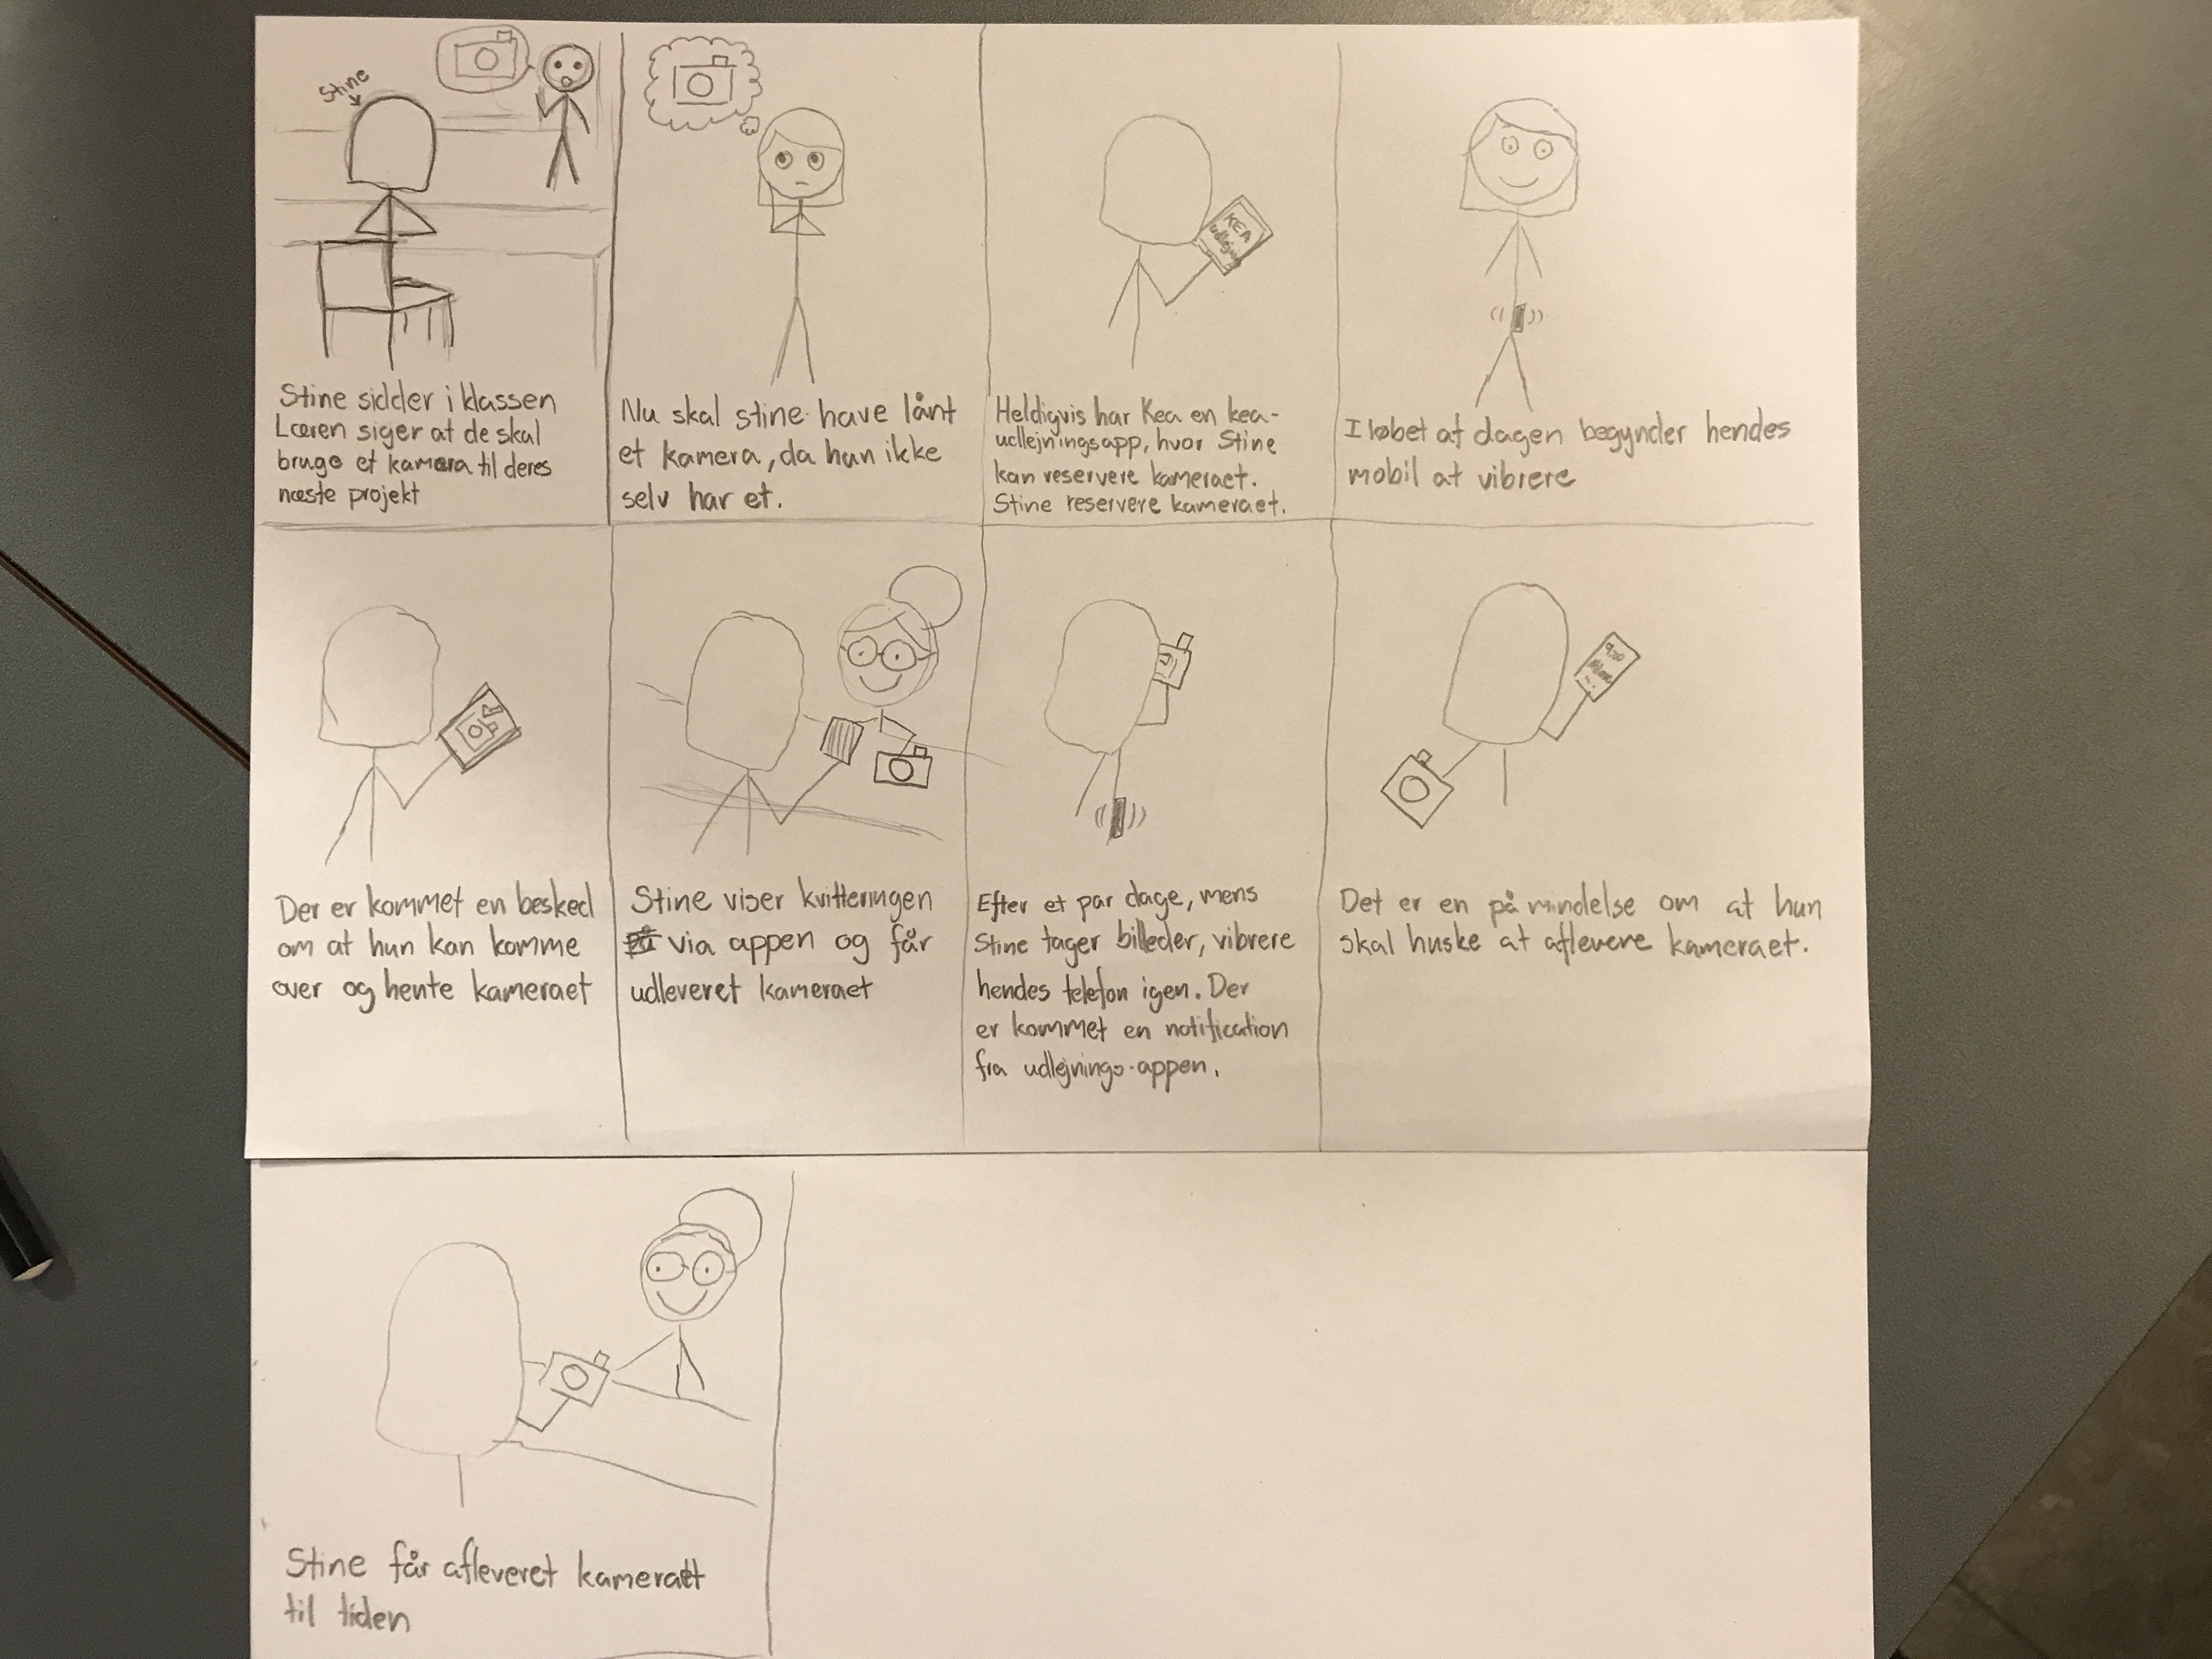 Stine
Stine sidder i klassen
Læren siger at de skal
bruge et kamera til deres
næste projekt
Nu skal stine have lånt
et kamera, da hun ikke
selv har et.
KEA
Heldigvis har Kea en kea-
udlejningsapp, hvor Stine
kan reservere kameraet.
Stine reservere kameraet.
I løbet af dagen begynder hendes
mobil at vibrere
Der er kommet en besked
om at hun kan komme
over og hente kameraet
Stine viser kvitteringen
på via appen og får
udleveret kameraet
Efter et par dage, mens
Stine tager billeder, vibrere
hendes telefon igen. Der
er kommet en notification
fra udlejnings-appen.
Det er en påmindelse om at hun
skal huske at aflevere kameraet.
Stine får afleveret kameraet
til tiden